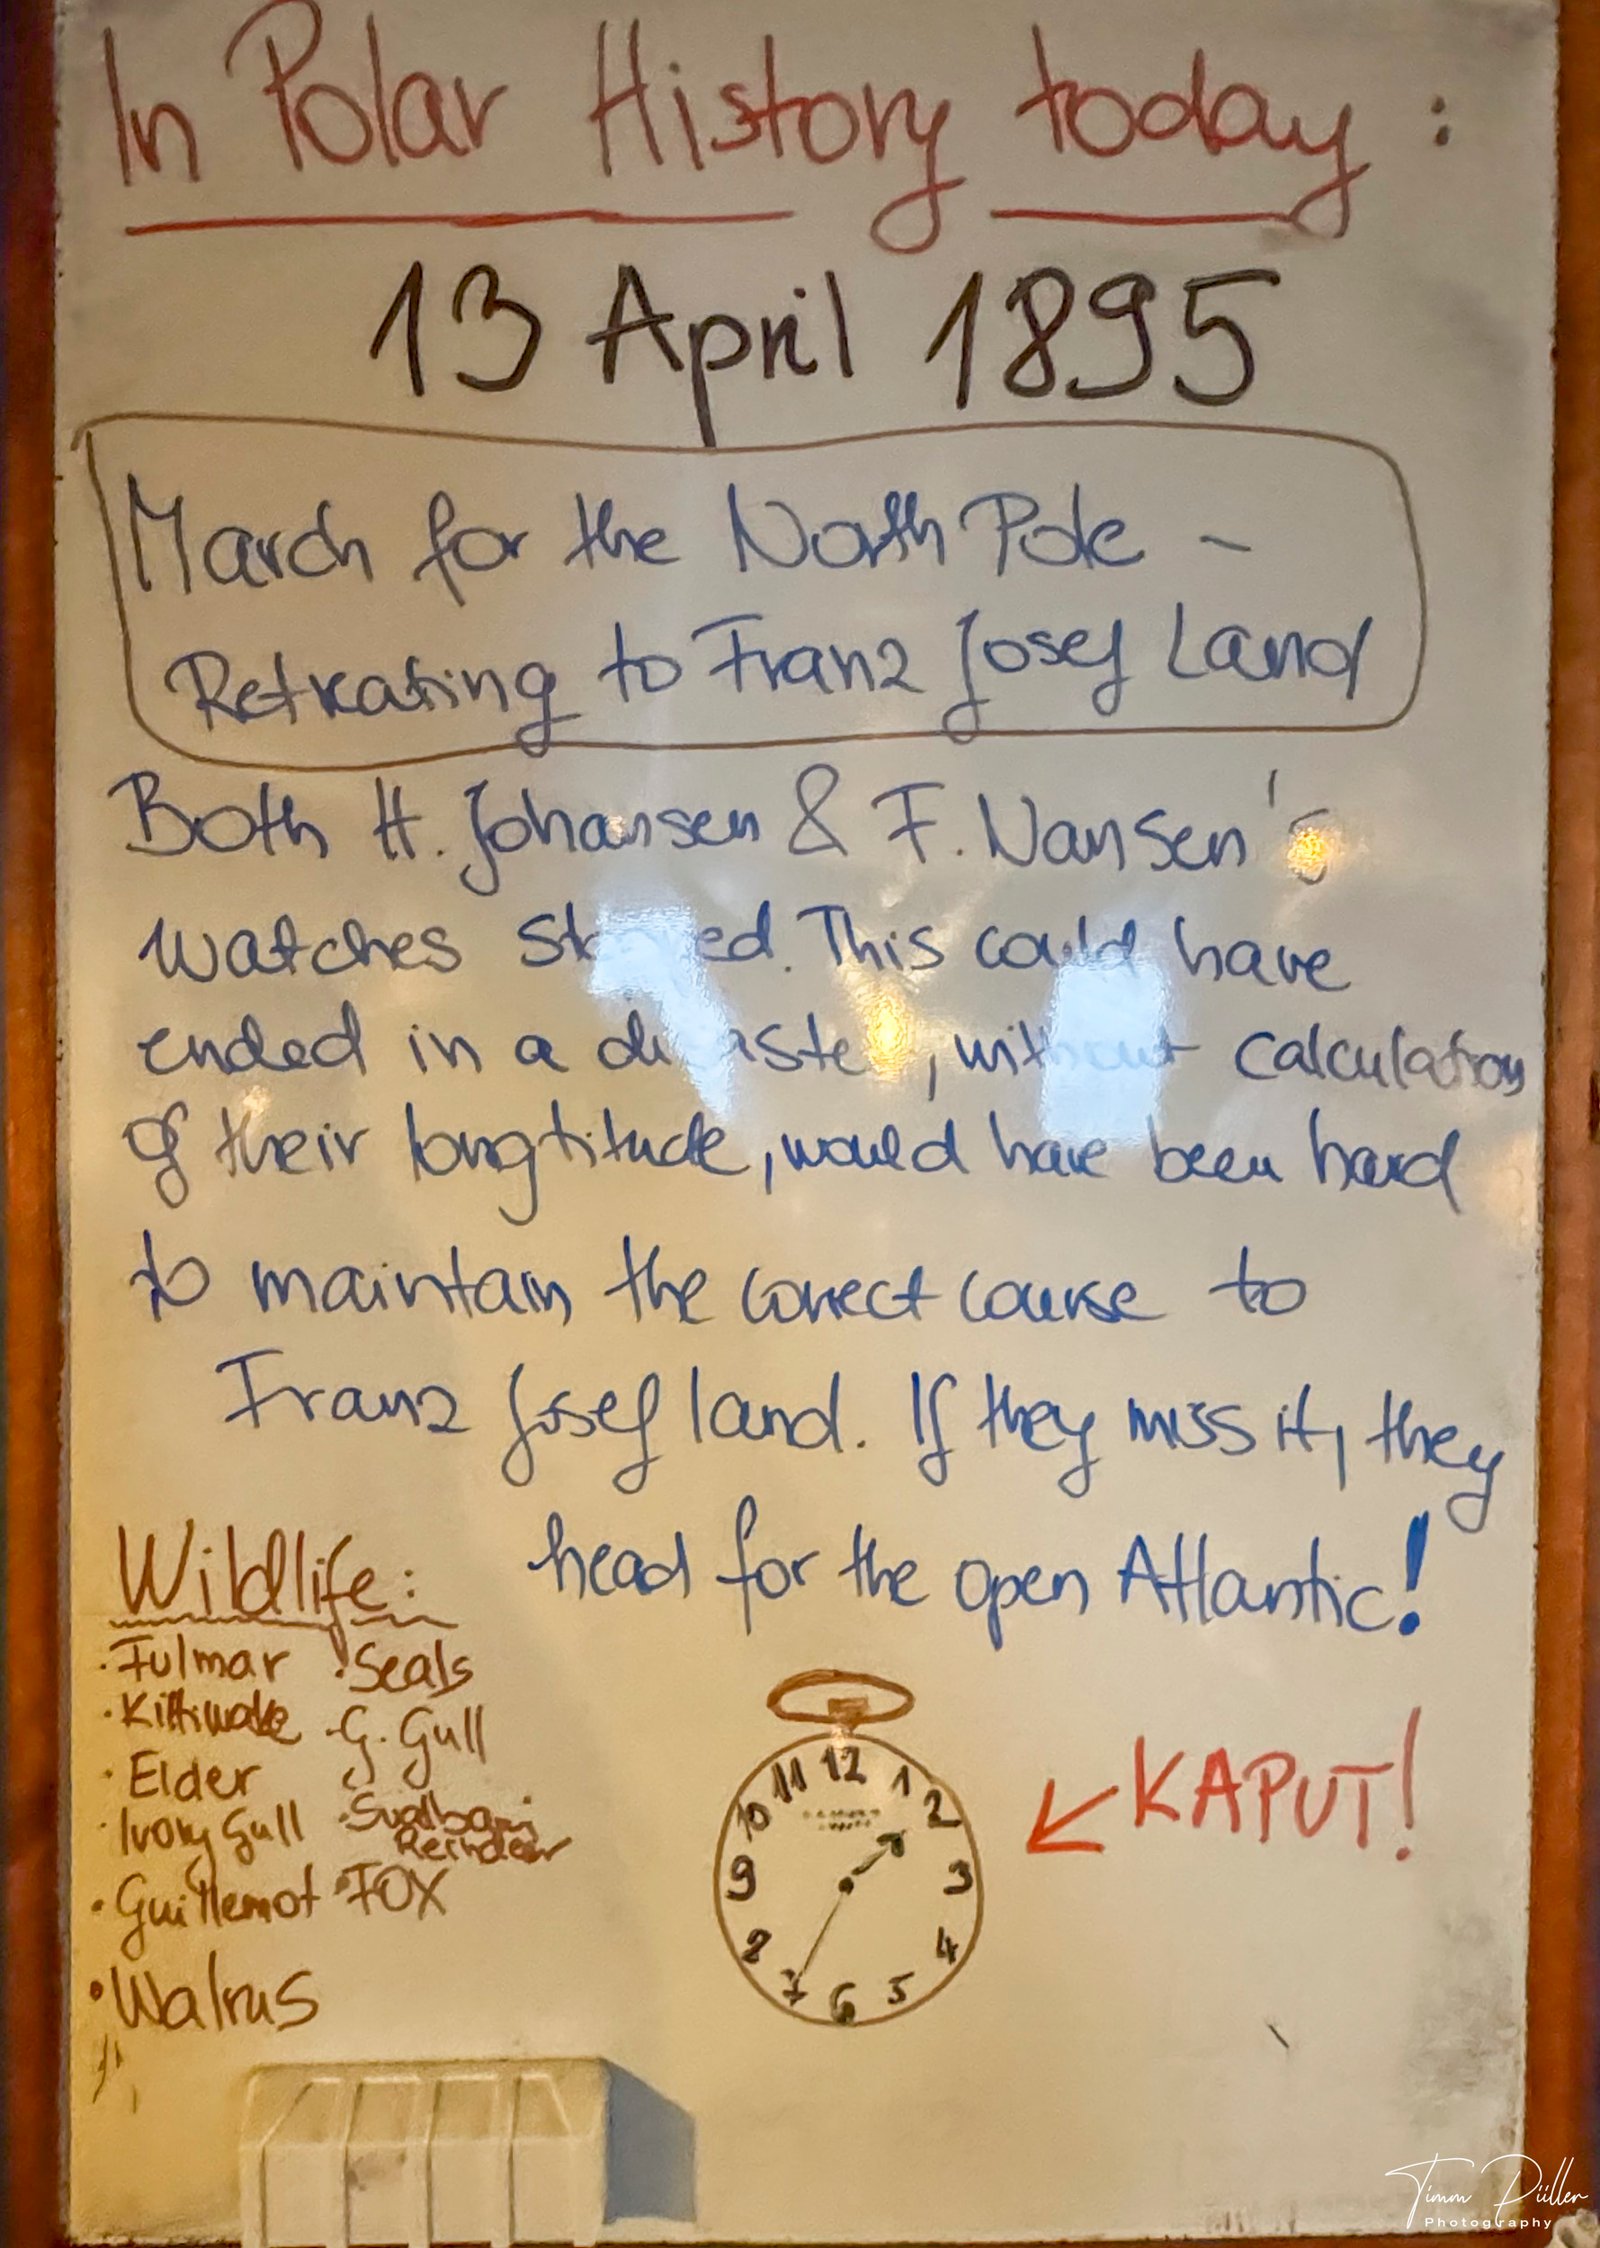 In Polar History today :
13 April 1895
March for the North Pole -
Retreating to Franz Josef Land
Both H. Johansen & F. Nansen's
watches stopped. This could have
ended in a disaster, without calculation
of their longtitude, would have been hard
to maintain the correct course to
Franz Josef land. If they miss it, they
head for the open Atlantic!
Wildlife:
· Fulmar
· Kittiwake
· Eider
· Ivory Gull
· Guillemot
· Walrus
· Seals
· G. Gull
· Svalbard
Reindeer
· FOX
12
11 1
10 2
9 3
8 4
7 5
6
KAPUT!
Timm Püller
Photography